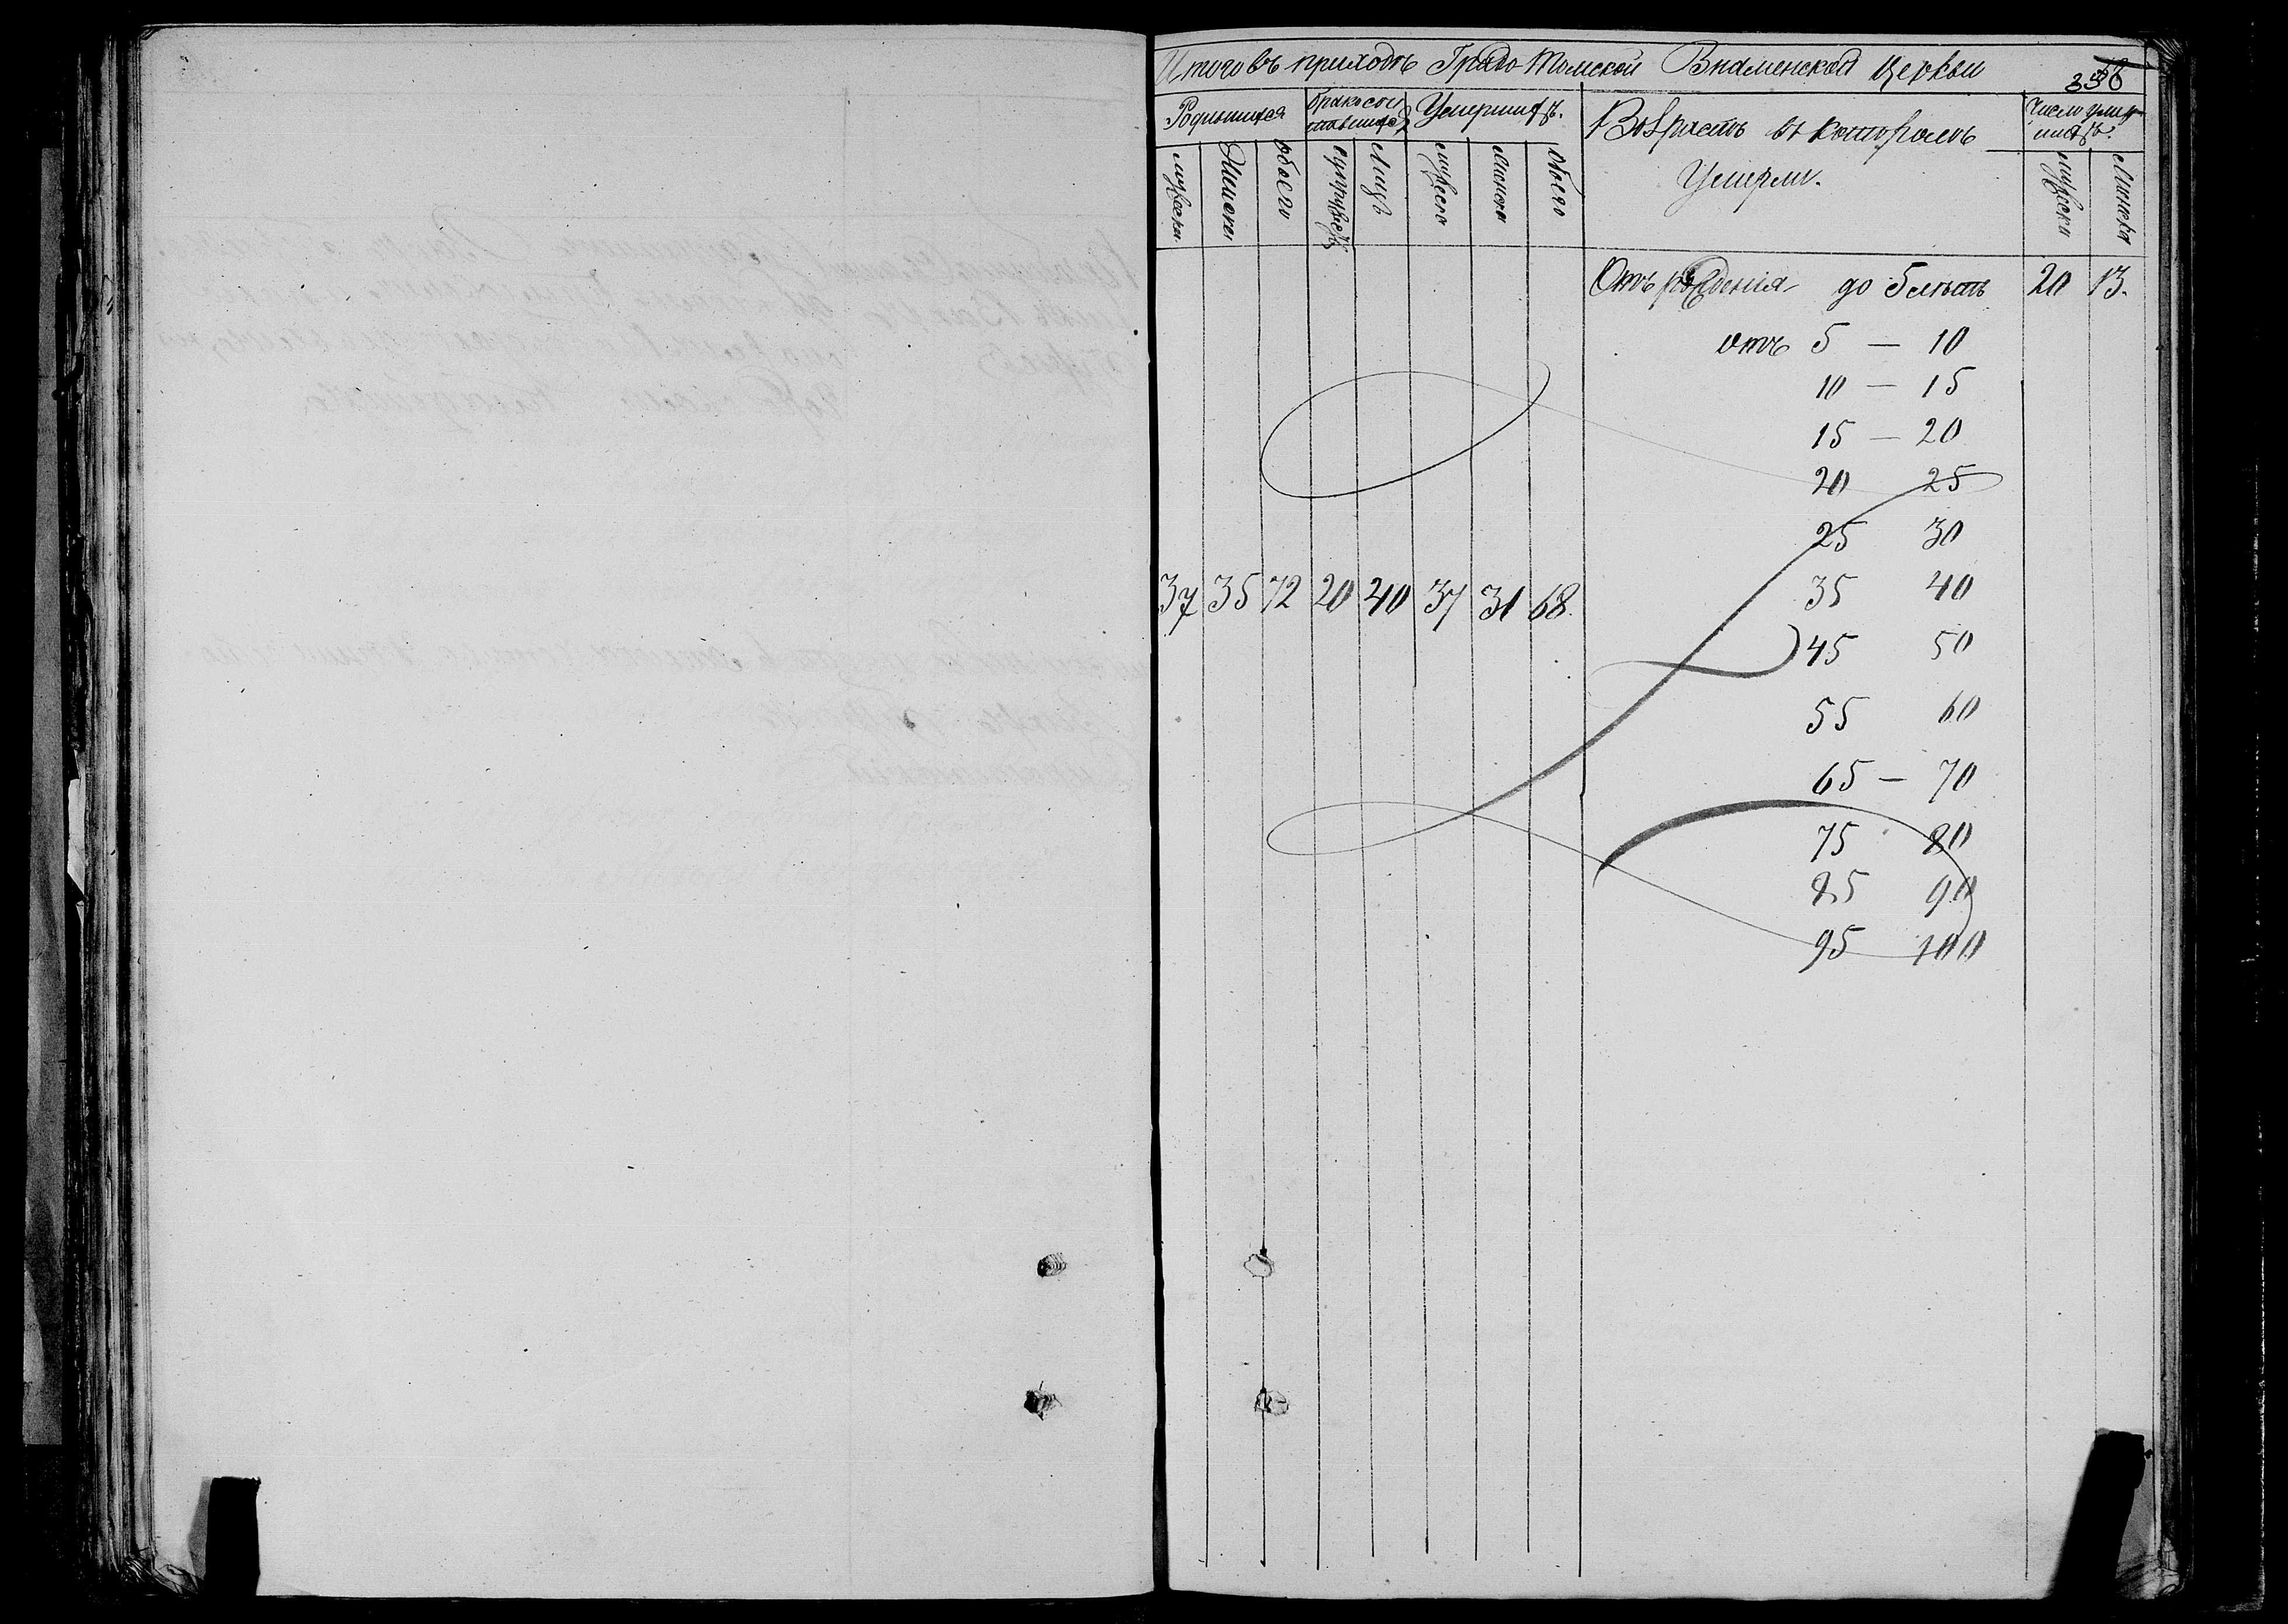 Итого въ приходѣ Градо-Томской Знаменской церкви
Родившихся
бракосоче
тавшихся
Умершихъ.
Возрастъ въ которомъ
Умерли.
Число умер
шихъ.
мужеска
Женска
обоего
супружествъ
Лицъ
мужеска
женска
обоего
мужеска
женска
Отъ рожденія до 5 лѣтъ 20 13.
отъ 5 — 10
10 — 15
15 — 20
20 25
25 30
37 35 72 20 40 37 31 68.
35 40
45 50
55 60
65 — 70
75 80
85 90
95 100